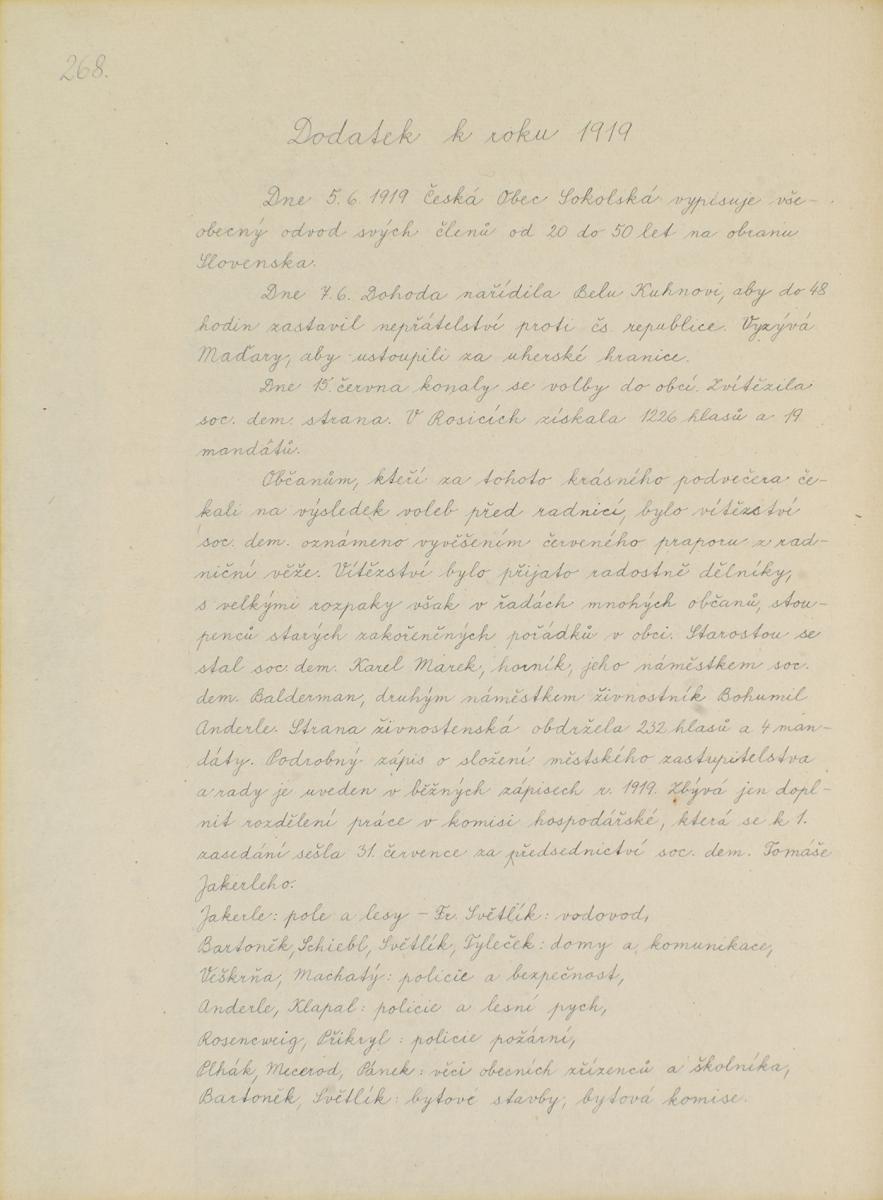 268.
Dodatek k roku 1919
Dne 5.6. 1919 Česká Obec Sokolská vypisuje vše-
obecný odvod svých členů od 20 do 50 let na obranu
Slovenska.
Dne 7.6. Dohoda nařídila Belu Kuhnovi, aby do 48
hodin zastavil nepřátelství proti čs. republice. Vyzývá
Maďary, aby ustoupili za uherské hranice.
Dne 15. června konaly se volby do obcí. Zvítězila
soc. dem. strana. V Rosicích získala 1226 hlasů a 19
mandátů.
Občanům, kteří za tohoto krásného podvečera če-
kali na výsledek voleb před radnicí, bylo vítězství
soc. dem. oznámeno vyvěšením červeného praporu z rad-
niční věže. Vítězství bylo přijato radostně dělníky,
s velkými rozpaky však v řadách mnohých občanů, stou-
penců starých zakořeněných pořádků v obci. Starostou se
stal soc. dem. Karel Marek, horník, jeho náměstkem soc.
dem. Balderman, druhým náměstkem živnostník Bohumil
Anderle. Strana živnostenská obdržela 232 hlasů a 4 man-
dáty. Podrobný zápis o složení městského zastupitelstva
a rady je uveden v běžných zápisech r. 1919. Zbývá jen dopl-
nit rozdělení práce v komisi hospodářské, která se k 1.
zasedání sešla 31. července za předsednictví soc. dem. Tomáše
Jakerleho:
Jakerle: pole a lesy – Fr. Světlík: vodovod,
Bartoněk, Schiebl, Světlík, Tyleček: domy a komunikace,
Veškrňa, Machatý: policie a bezpečnost,
Anderle, Klapal: policie a lesní pych,
Rosencweig, Přikryl: policie požární,
Plhák, Mecerod, Pánek: věci obecních zřízenců a školníka,
Bartoněk, Světlík: bytové stavby, bytová komise.